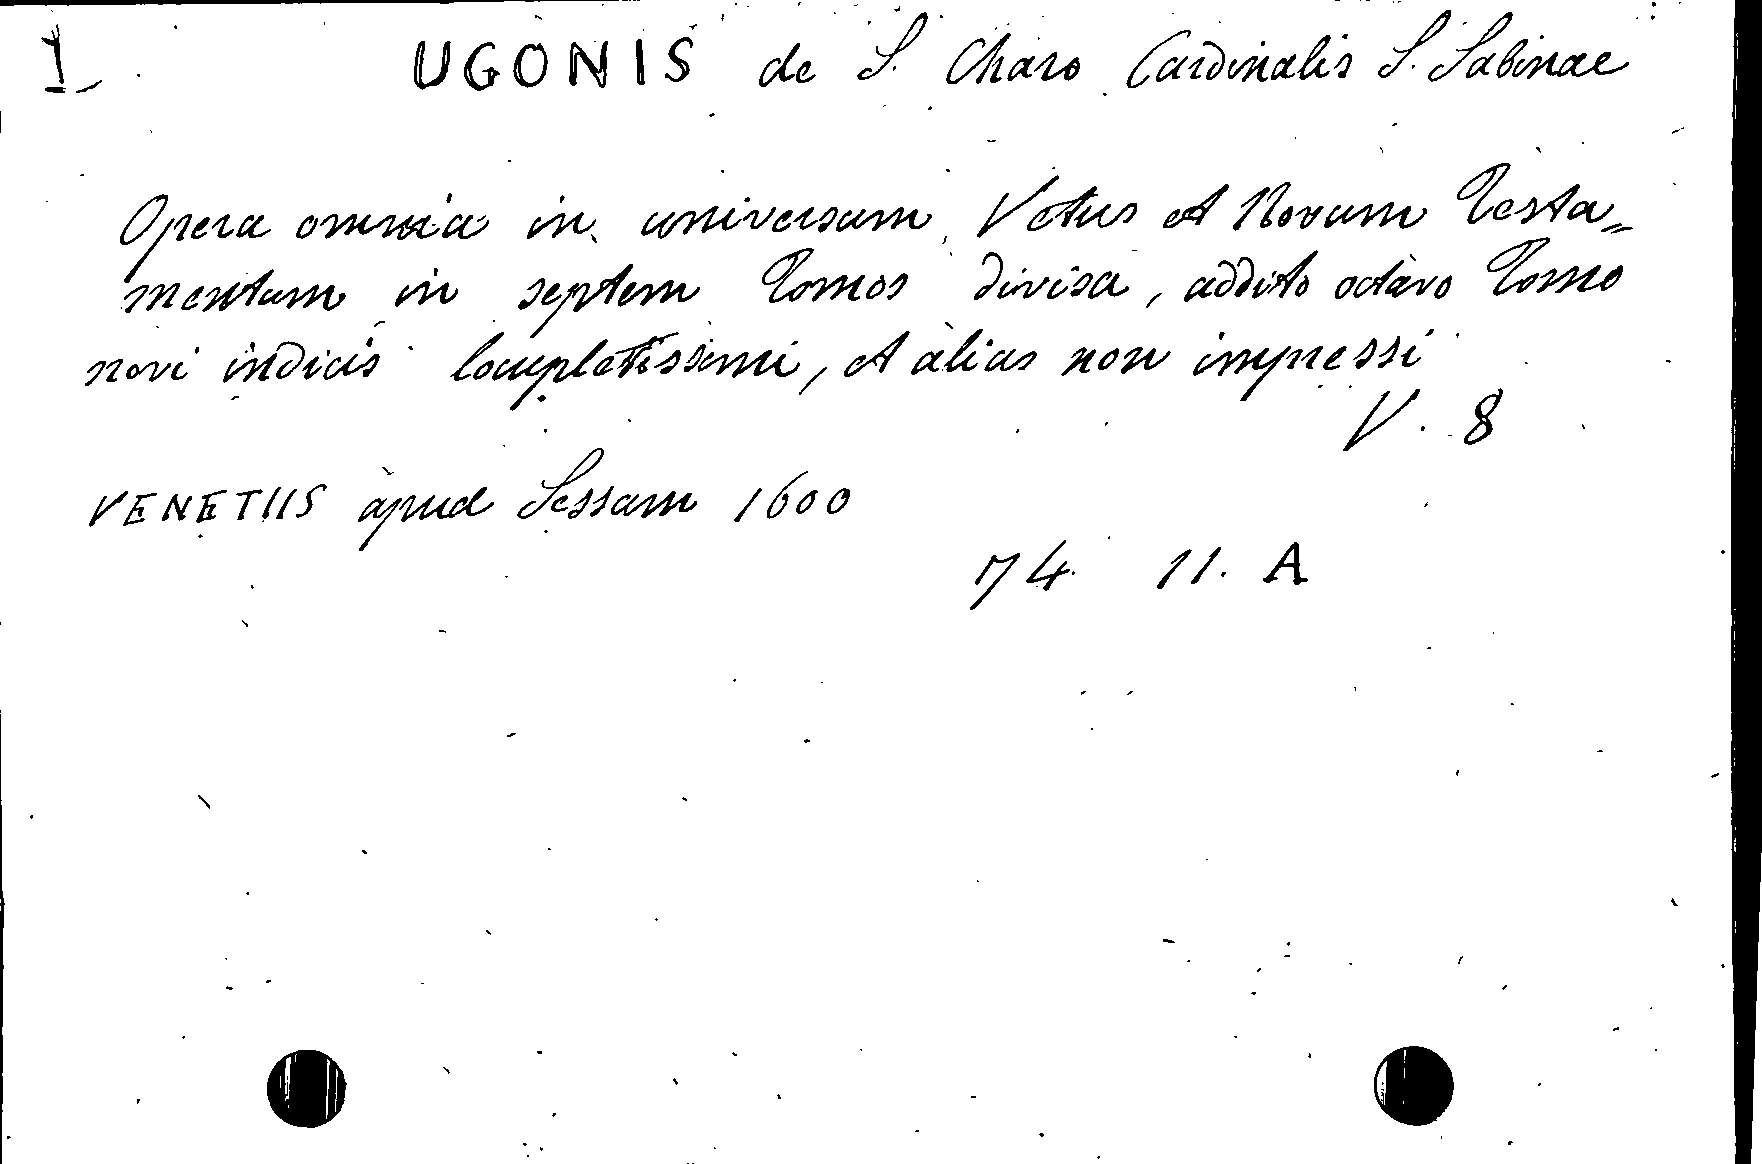 1 UGONIS de S. Charo Cardinalis S. Sabinae
Opera omnia in universum Vetus et Novum Testa=
mentum in septem Tomos divisa, addito octavo Tomo
novi indicis locupletissimi, et alias non impressi
V. 8
VENETIIS apud Sessam 1600
74. 11. A